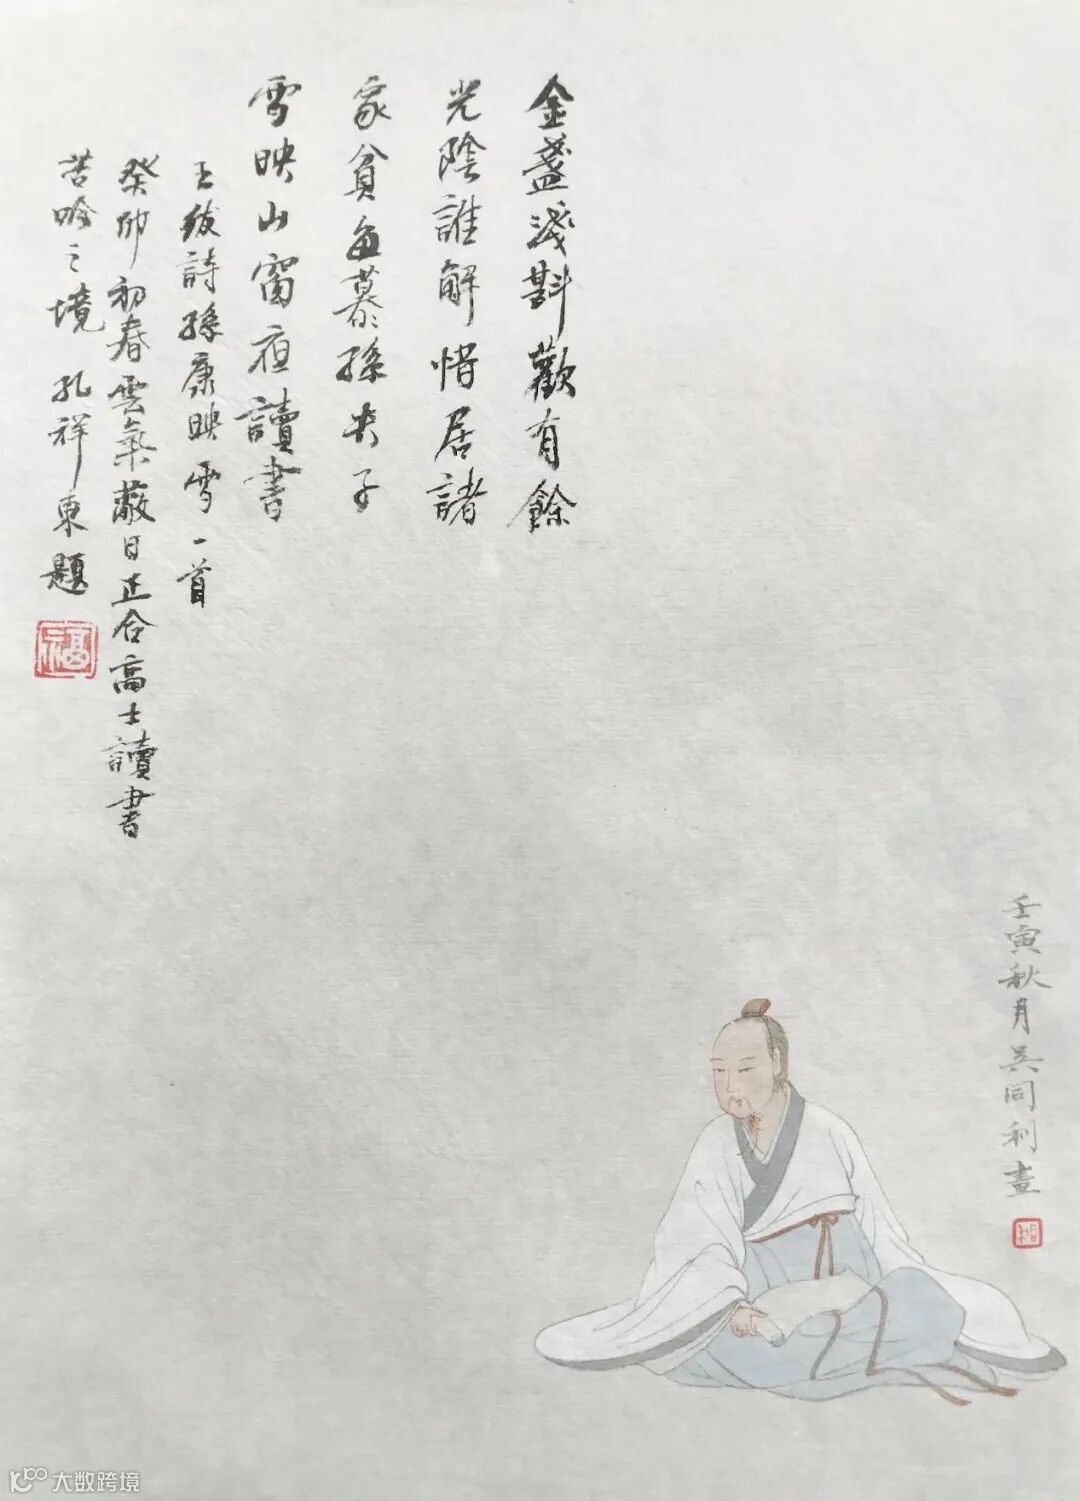 金盞淺斟歡有餘
光陰誰解惜居諸
家貧每慕孫夫子
雪映山窗夜讀書
王紱詩孫康映雪一首
癸卯初春雲氣蔽日正合高士讀書
苦吟之境 孔祥東題
福
壬寅秋月吳同利畫
大数跨境